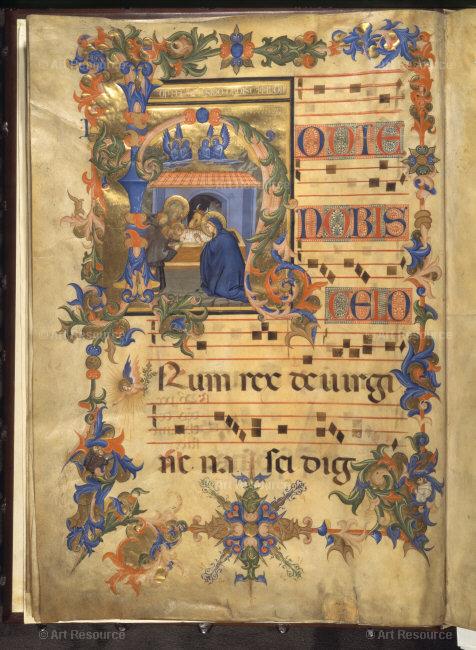 HODIE
NOBIS
CELO
Rum rex de uirgi
ne na sci dig
© Art Resource
© Art Resource
© Art Resource